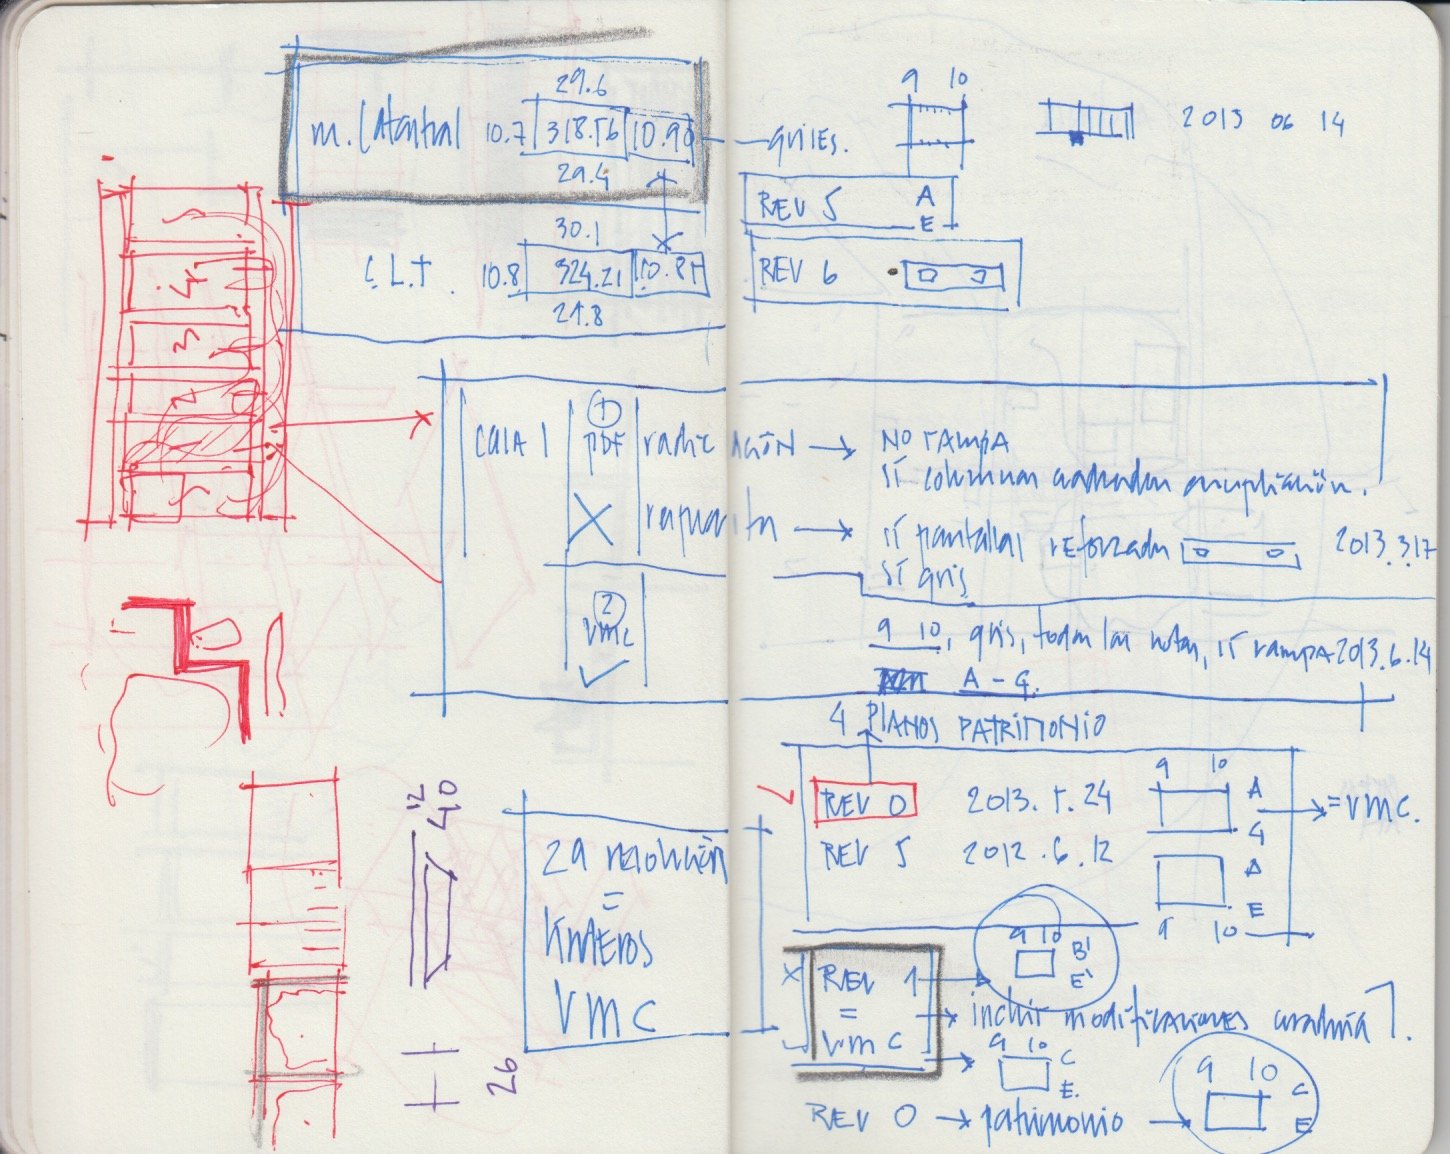 29.6
m. Catastral 10.7 318.56 10.90 grises.
29.4
30.1
C.L.T. 10.8 324.21 10.87
29.8
9 10
2013 06 14
REV 5 A
E
REV 6
4
3
2
CULA 1
1
PDF radicación → NO rampa
sí columnas
→ sí pantallas reforzadas 2013.3.17
sí gris
2
VMC
9 10, gris, todas las notas, sí rampa 2013.6.14
A - G.
4 PLANOS PATRIMONIO
REV 0 2013.5.24 9 10 A
G → = VMC.
REV 5 2012.6.12 A
E
9 10
12
40
26
2a resolución
=
VMC
REV 1 → 9 10 B'
E'
=
VMC
→ incluir modificaciones
→ 9 10 C
E.
REV 0 → patrimonio → 9 10 C
E